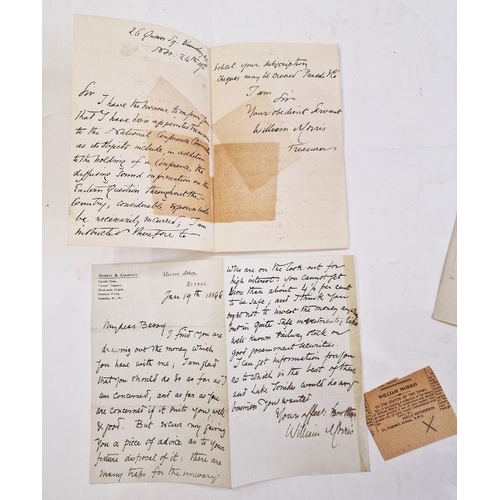 26 Queen Sq. Bloomsbury
Nov. 24th
Sir
I have the honour to inform you
that I have been appointed Treasurer
to the National Conference
as its objects include, in addition
to the holding of a Conference, the
diffusing sound information on the
Eastern Question throughout the
Country, considerable expenses will
be necessarily incurred; I am
instructed therefore to
collect your subscription
Cheques may be crossed
I am
Sir
Your obedient Servant
William Morris
Treasurer
Morris & Company
Merton Abbey,
Surrey.
Jan 19th
My dear
I find you are
drawing out the money which
you have with me; I am glad
that you should do so as far as I
am concerned, and as far as you
are concerned if it suits you well
& good. But excuse my giving
you a piece of advice as to your
future disposal of it: there are
many traps for the unwary
who are on the look out for
high interest. You cannot get
more than about 4½ per cent
to be safe; and I think you
ought not to invest the money any
but in quite safe investments, like
well-known Railway stock or
good government securities.
I can get information for you
as to which is the best of these
and would do any
business you wanted
Yours affect: brother
William Morris
WILLIAM MORRIS
TO THE EDITOR OF THE TIMES